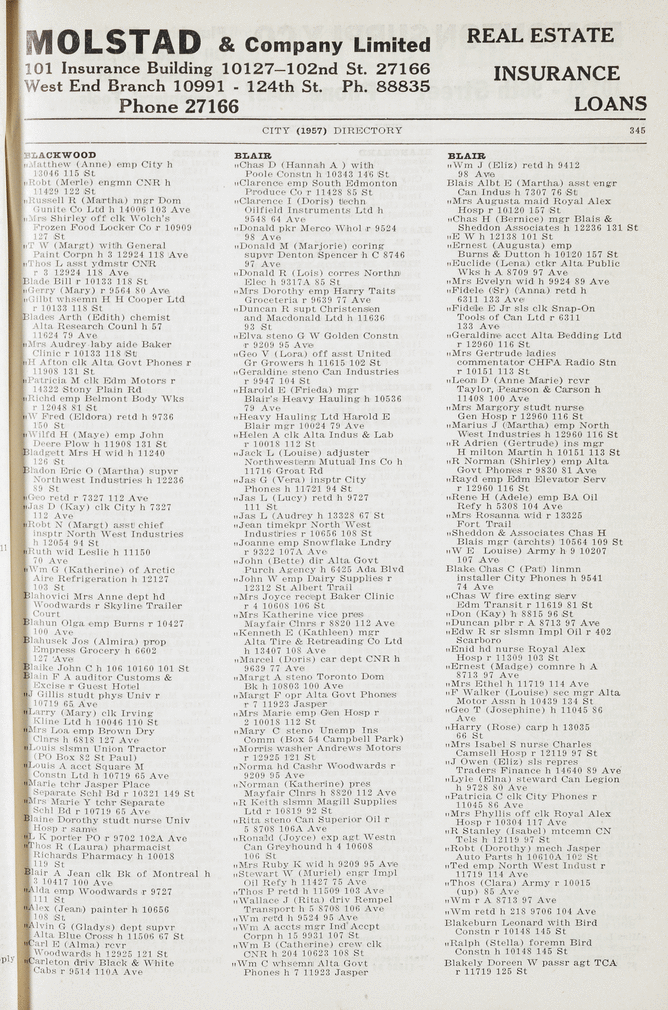 MOLSTAD & Company Limited
101 Insurance Building 10127—102nd St. 27166
West End Branch 10991 - 124th St. Ph. 88835
Phone 27166
REAL ESTATE
INSURANCE
LOANS
CITY (1957) DIRECTORY 345
BLACKWOOD
„Matthew (Anne) emp City h
13046 115 St
„Robt (Merle) engmn CNR h
11429 122 St
„Russell R (Martha) mgr Dom
Gunite Co Ltd h 14006 103 Ave
„Mrs Shirley off clk Wolch's
Frozen Food Locker Co r 10909
127 St
„T W (Margt) with General
Paint Corpn h 3 12924 118 Ave
„Thos L asst ydmstr CNR
r 3 12924 118 Ave
Blade Bill r 10133 118 St
„Gerry (Mary) r 9564 90 Ave
„Gilbt whsemn H H Cooper Ltd
r 10133 118 St
Blades Arth (Edith) chemist
Alta Research Counl h 57
11624 79 Ave
„Mrs Audrey laby aide Baker
Clinic r 10133 118 St
„H Afton clk Alta Govt Phones r
11908 131 St
„Patricia M clk Edm Motors r
14322 Stony Plain Rd
„Richd emp Belmont Body Wks
r 12048 81 St
„W Fred (Eldora) retd h 9736
150 St
„Wilfd H (Maye) emp John
Deere Plow h 11908 131 St
Bladgett Mrs H wid h 11240
126 St
Bladon Eric O (Martha) supvr
Northwest Industries h 12236
89 St
„Geo retd r 7327 112 Ave
„Jas D (Kay) clk City h 7327
112 Ave
„Robt N (Margt) asst chief
insptr North West Industries
h 12054 94 St
„Ruth wid Leslie h 11150
70 Ave
„Wm G (Katherine) of Arctic
Aire Refrigeration h 12127
103 St
Blahovici Mrs Anne dept hd
Woodwards r Skyline Trailer
Court
Blahun Olga emp Burns r 10427
100 Ave
Blahusek Jos (Almira) prop
Empress Grocery h 6602
127 Ave
Blaike John C h 106 10160 101 St
Blain F A auditor Customs &
Excise r Guest Hotel
„J Gillis studt phys Univ r
10719 65 Ave
„Larry (Mary) clk Irving
Kline Ltd h 10046 110 St
„Mrs Loa emp Brown Dry
Clnrs h 6818 127 Ave
„Louis slsmn Union Tractor
(PO Box 82 St Paul)
„Louis A acct Square M
Constn Ltd h 10719 65 Ave
„Marie tchr Jasper Place
Separate Schl Bd r 10321 149 St
„Mrs Marie Y tchr Separate
Schl Bd r 10719 65 Ave
Blaine Dorothy studt nurse Univ
Hosp r same
„L K porter PO r 9702 102A Ave
„Thos R (Laura) pharmacist
Richards Pharmacy h 10018
119 St
Blair A Jean clk Bk of Montreal h
3 10417 100 Ave
„Alda emp Woodwards r 9727
111 St
„Alex (Jean) painter h 10656
108 St
„Alvin G (Gladys) dept supvr
Alta Blue Cross h 11506 67 St
„Carl E (Alma) recvr
Woodwards h 12925 121 St
„Carleton driv Black & White
Cabs r 9514 110A Ave
BLAIR
„Chas D (Hannah A ) with
Poole Constn h 10343 146 St
„Clarence emp South Edmonton
Produce Co r 11428 85 St
„Clarence I (Doris) techn
Oilfield Instruments Ltd h
9548 64 Ave
„Donald pkr Merco Whol r 9524
98 Ave
„Donald M (Marjorie) coring
supvr Denton Spencer h C 8746
97 Ave
„Donald R (Lois) corres Northn
Elec h 9317A 85 St
„Mrs Dorothy emp Harry Taits
Groceteria r 9639 77 Ave
„Duncan R supt Christensen
and Macdonald Ltd h 11636
93 St
„Elva steno G W Golden Constn
r 9209 95 Ave
„Geo V (Lora) off asst United
Gr Growers h 11615 102 St
„Geraldine steno Can Industries
r 9947 104 St
„Harold E (Frieda) mgr
Blair's Heavy Hauling h 10536
79 Ave
„Heavy Hauling Ltd Harold E
Blair mgr 10024 79 Ave
„Helen A clk Alta Indus & Lab
r 10018 112 St
„Jack L (Louise) adjuster
Northwestern Mutual Ins Co h
11716 Groat Rd
„Jas G (Vera) insptr City
Phones h 11721 94 St
„Jas L (Lucy) retd h 9727
111 St
„Jas L (Audrey h 13328 67 St
„Jean timekpr North West
Industries r 10656 108 St
„Joanne emp Snowflake Lndry
r 9322 107A Ave
„John (Bette) dir Alta Govt
Purch Agency h 6425 Ada Blvd
„John W emp Dairy Supplies r
12312 St Albert Trail
„Mrs Joyce recept Baker Clinic
r 4 10608 106 St
„Mrs Katherine vice pres
Mayfair Clnrs r 8820 112 Ave
„Kenneth E (Kathleen) mgr
Alta Tire & Retreading Co Ltd
h 13407 108 Ave
„Marcel (Doris) car dept CNR h
9639 77 Ave
„Margt A steno Toronto Dom
Bk h 10803 100 Ave
„Margt F opr Alta Govt Phones
r 7 11923 Jasper
„Mrs Marie emp Gen Hosp r
2 10018 112 St
„Mary C steno Unemp Ins
Comn (Box 54 Campbell Park)
„Morris washer Andrews Motors
r 12925 121 St
„Norma hd Cashr Woodwards r
9209 95 Ave
„Norman (Katherine) pres
Mayfair Clnrs h 8820 112 Ave
„R Keith slsmn Magill Supplies
Ltd r 10819 92 St
„Rita steno Can Superior Oil r
5 8708 106A Ave
„Ronald (Joyce) exp agt Westn
Can Greyhound h 4 10608
106 St
„Mrs Ruby K wid h 9209 95 Ave
„Stewart W (Muriel) engr Impl
Oil Refy h 11427 75 Ave
„Thos P retd h 11509 103 Ave
„Wallace J (Rita) driv Rempel
Transport h 5 8708 106 Ave
„Wm retd h 9524 95 Ave
„Wm A accts mgr Ind Accpt
Corpn h 15 9931 107 St
„Wm B (Catherine) crew clk
CNR h 204 10623 108 St
„Wm C whsemn Alta Govt
Phones h 7 11923 Jasper
BLAIR
„Wm J (Eliz) retd h 9412
98 Ave
Blais Albt E (Martha) asst engr
Can Indus h 7307 76 St
„Mrs Augusta maid Royal Alex
Hosp r 10120 157 St
„Chas H (Bernice) mgr Blais &
Sheddon Associates h 12236 131 St
„E W h 12138 101 St
„Ernest (Augusta) emp
Burns & Dutton h 10120 157 St
„Euclide (Lena) ctkr Alta Public
Wks h A 8709 97 Ave
„Mrs Evelyn wid h 9924 89 Ave
„Fidele (Sr) (Anna) retd h
6311 133 Ave
„Fidele E Jr sls clk Snap-On
Tools of Can Ltd r 6311
133 Ave
„Geraldine acct Alta Bedding Ltd
r 12960 116 St
„Mrs Gertrude ladies
commentator CHFA Radio Stn
r 10151 113 St
„Leon D (Anne Marie) rcvr
Taylor, Pearson & Carson h
11408 100 Ave
„Mrs Margory studt nurse
Gen Hosp r 12960 116 St
„Marius J (Martha) emp North
West Industries h 12960 116 St
„R Adrien (Gertrude) ins mgr
H milton Martin h 10151 113 St
„R Norman (Shirley) emp Alta
Govt Phones r 9830 81 Ave
„Rayd emp Edm Elevator Serv
r 12960 116 St
„Rene H (Adele) emp BA Oil
Refy h 5308 104 Ave
„Mrs Rosanna wid r 13325
Fort Trail
„Sheddon & Associates Chas H
Blais mgr (archts) 10564 109 St
„W E Louise) Army h 9 10207
107 Ave
Blake Chas C (Pat) linmn
installer City Phones h 9541
74 Ave
„Chas W fire exting serv
Edm Transit r 11619 81 St
„Don (Kay) h 8815 96 St
„Duncan plbr r A 8713 97 Ave
„Edw R sr slsmn Impl Oil r 402
Scarboro
„Enid hd nurse Royal Alex
Hosp r 11309 103 St
„Ernest (Madge) comnre h A
8713 97 Ave
„Mrs Ethel h 11719 114 Ave
„F Walker (Louise) sec mgr Alta
Motor Assn h 10439 134 St
„Geo T (Josephine) h 11045 86
Ave
„Harry (Rose) carp h 13035
66 St
„Mrs Isabel S nurse Charles
Camsell Hosp r 12119 97 St
„J Owen (Eliz) sls repres
Traders Finance h 14640 89 Ave
„Lyle (Elna) steward Can Legion
h 9728 80 Ave
„Patricia C clk City Phones r
11045 86 Ave
„Mrs Phyllis off clk Royal Alex
Hosp r 10304 117 Ave
„R Stanley (Isabel) mtcemn CN
Tels h 12119 97 St
„Robt (Dorothy) mech Jasper
Auto Parts h 10610A 102 St
„Ted emp North West Indust r
11719 114 Ave
„Thos (Clara) Army r 10015
(up) 85 Ave
„Wm r A 8713 97 Ave
„Wm retd h 218 9706 104 Ave
Blakeburn Leonard with Bird
Constn r 10148 145 St
„Ralph (Stella) foremn Bird
Constn h 10148 145 St
Blakely Doreen W passr agt TCA
r 11719 125 St